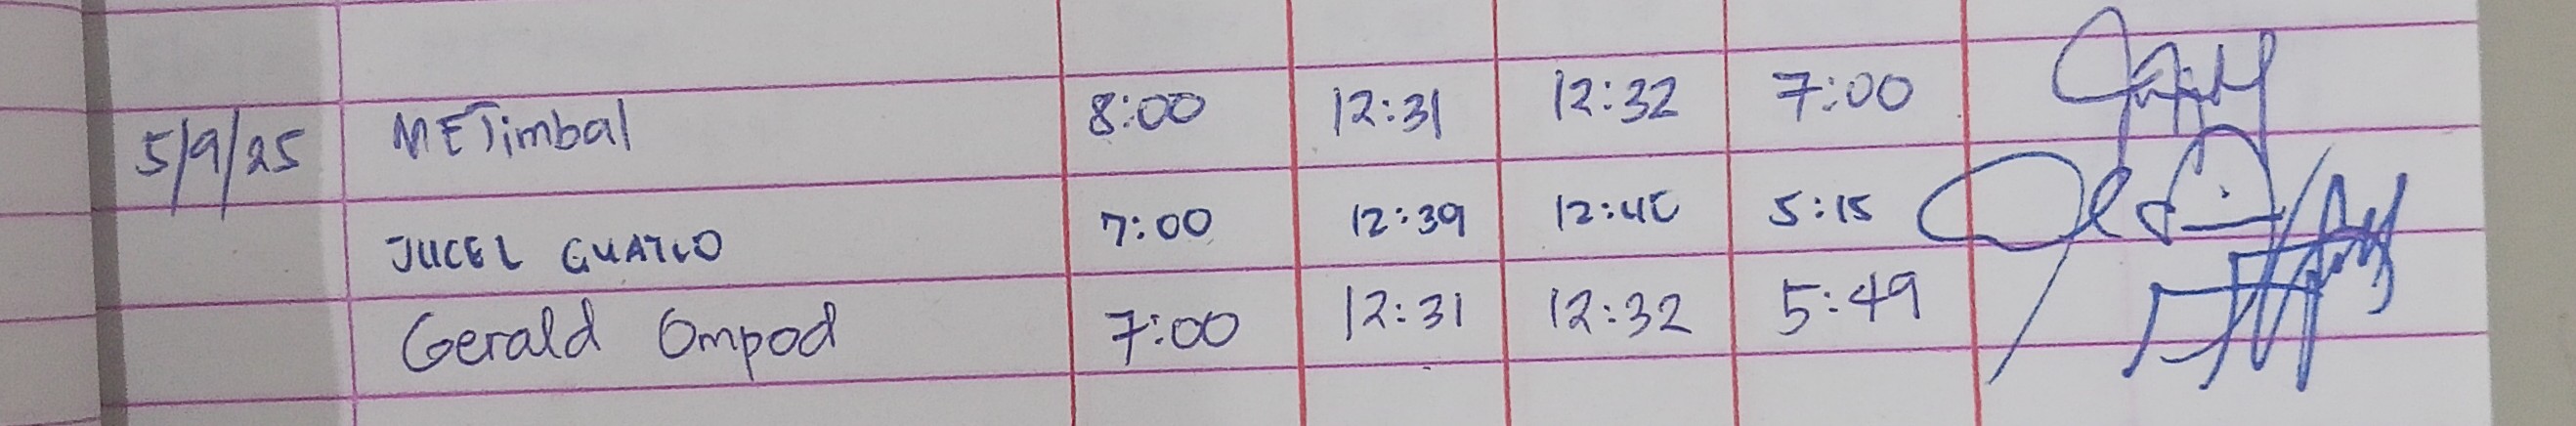 5/9/25 METimbal 8:00 12:31 12:32 7:00
JUCEL GUATLO 7:00 12:39 12:40 5:15
Gerald Ompod 7:00 12:31 12:32 5:49